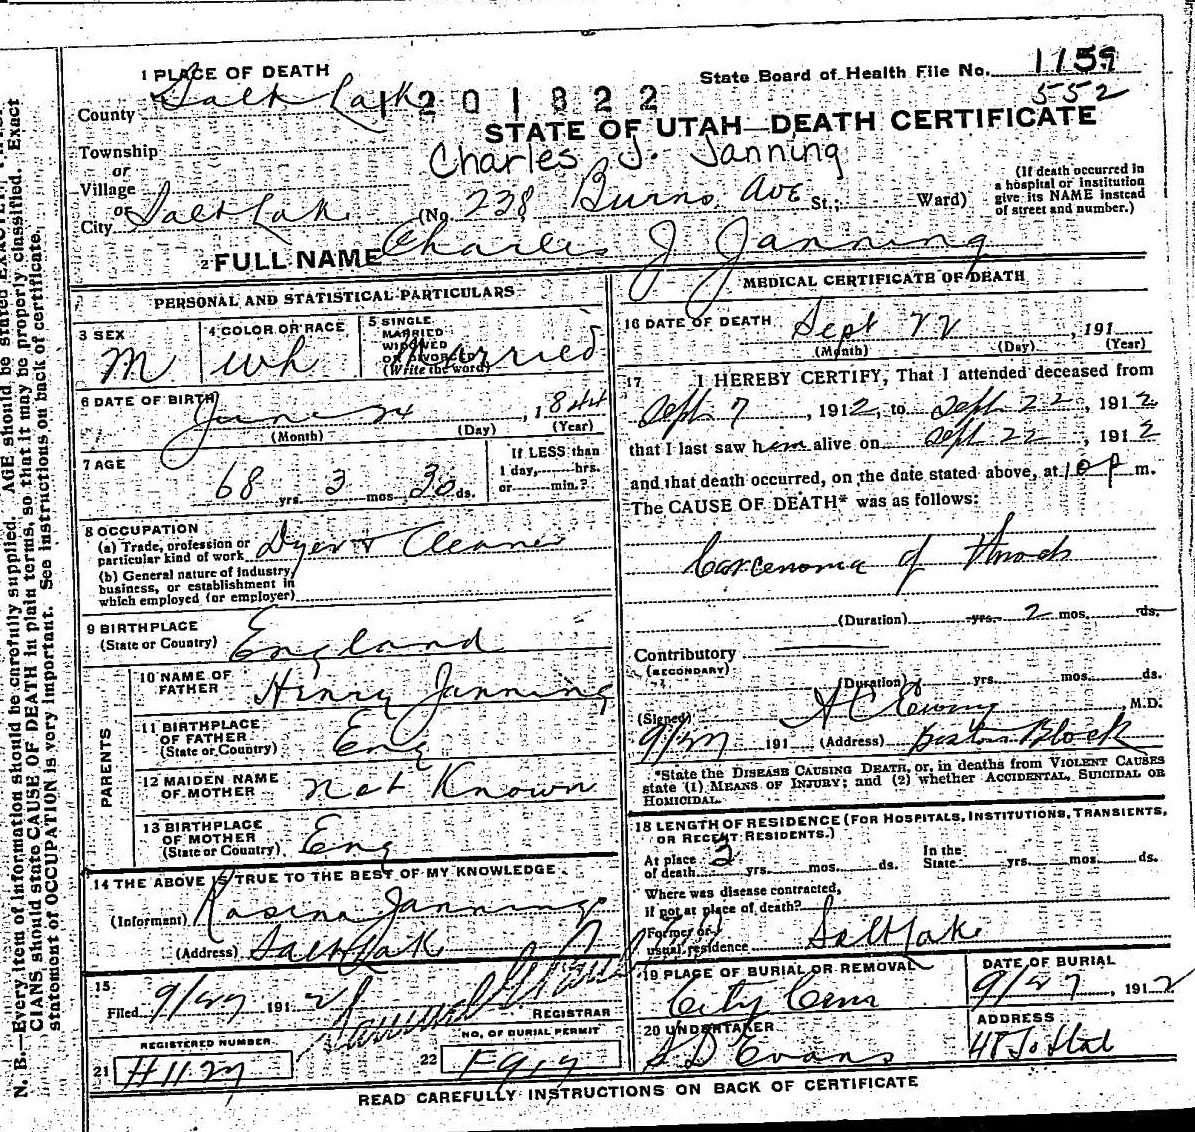 1 PLACE OF DEATH
State Board of Health File No. 1159
552
County Salt Lake 1201822
STATE OF UTAH—DEATH CERTIFICATE
Township
Charles J. Janning
or
Village
or
City Salt Lake (No. 238 Burns Ave St.; Ward)
(If death occurred in
a hospital or institution
give its NAME instead
of street and number.)
2 FULL NAME Charles J Janning
PERSONAL AND STATISTICAL PARTICULARS
3 SEX M
4 COLOR OR RACE Wh
5 SINGLE
MARRIED
WIDOWED
OR DIVORCED
(Write the word) Married
6 DATE OF BIRTH
June 24, 1844
(Month) (Day) (Year)
7 AGE
68 yrs. 3 mos. 30 ds.
If LESS than
1 day, hrs.
or min.?
8 OCCUPATION
(a) Trade, profession or
particular kind of work Dyer & Cleaner
(b) General nature of industry,
business, or establishment in
which employed (or employer)
9 BIRTHPLACE
(State or Country) England
PARENTS
10 NAME OF
FATHER Henry Janning
11 BIRTHPLACE
OF FATHER
(State or Country) Eng
12 MAIDEN NAME
OF MOTHER Not Known
13 BIRTHPLACE
OF MOTHER
(State or Country) Eng
14 THE ABOVE IS TRUE TO THE BEST OF MY KNOWLEDGE
(Informant) Rosina Jannings
(Address) Salt Lake
15
Filed 9/27 1912 Samuel G
REGISTRAR
REGISTERED NUMBER
21 H1127
NO. OF BURIAL PERMIT
22 F917
MEDICAL CERTIFICATE OF DEATH
16 DATE OF DEATH Sept 22, 191
(Month) (Day) (Year)
17 I HEREBY CERTIFY, That I attended deceased from
Sept 7, 1912, to Sept 22, 1912
that I last saw him alive on Sept 22, 1912
and that death occurred, on the date stated above, at 10 p m.
The CAUSE OF DEATH* was as follows:
Carcenoma of throat
(Duration) yrs. 2 mos. ds.
Contributory
(SECONDARY)
(Duration) yrs. mos. ds.
(Signed) A C Ewing, M.D.
9/27 191 (Address) Boston Block
*State the DISEASE CAUSING DEATH, or, in deaths from VIOLENT CAUSES
state (1) MEANS OF INJURY; and (2) whether ACCIDENTAL, SUICIDAL OR
HOMICIDAL.
18 LENGTH OF RESIDENCE (FOR HOSPITALS, INSTITUTIONS, TRANSIENTS,
OR RECENT RESIDENTS.)
At place
of death 2 yrs. mos. ds.
In the
State yrs. mos. ds.
Where was disease contracted,
if not at place of death?
Former or
usual residence Salt Lake
19 PLACE OF BURIAL OR REMOVAL
City Cem
DATE OF BURIAL
9/27, 1912
20 UNDERTAKER
S D Evans
ADDRESS
48 So State
READ CAREFULLY INSTRUCTIONS ON BACK OF CERTIFICATE
N. B.—Every item of information should be carefully supplied. AGE should be stated EXACTLY.
CIANS should state CAUSE OF DEATH in plain terms, so that it may be properly classified. Exact
statement of OCCUPATION is very important. See instructions on back of certificate.